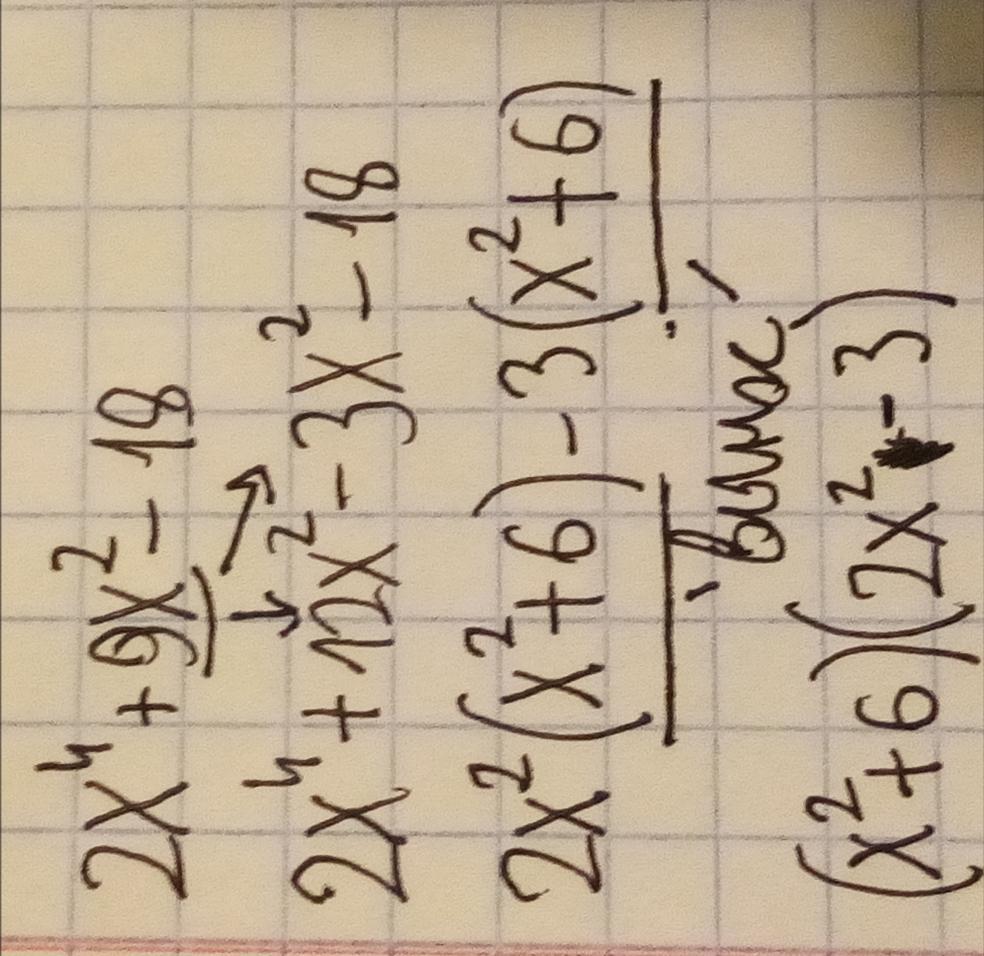 2x⁴ + 9x² - 18
2x⁴ + 12x² - 3x² - 18
2x² (x² + 6) - 3 (x² + 6)
(x² + 6) (2x² - 3)